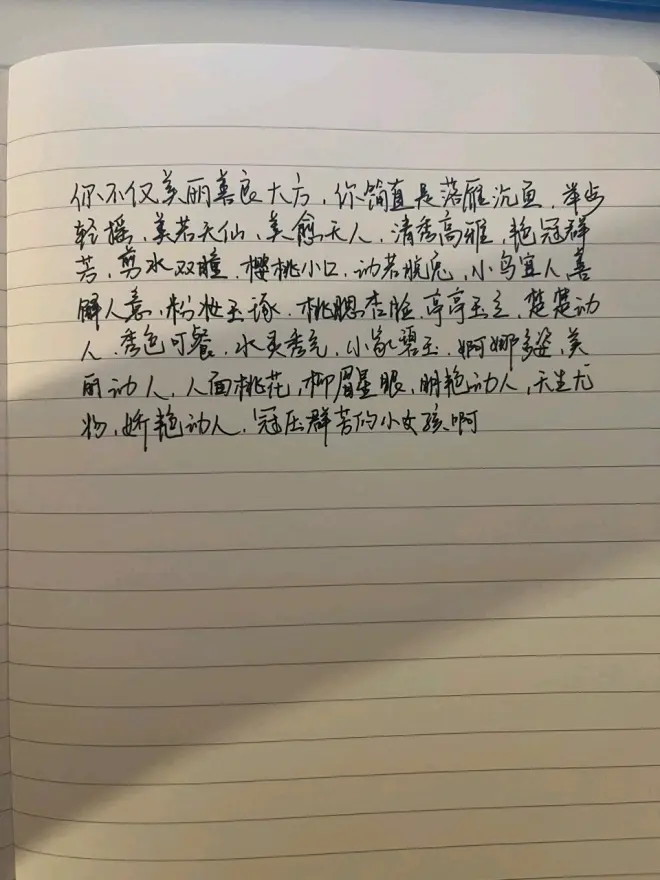 你不仅美丽善良大方，你简直是落雁沉鱼，举步
轻摇，美若天仙，美愈天人，清秀高雅，艳冠群
芳，剪水双瞳，樱桃小口，动若脱兔，小鸟宜人善
解人意，粉妆玉琢，桃腮杏脸，亭亭玉立，楚楚动
人，秀色可餐，水灵秀气，小家碧玉，婀娜多姿，美
丽动人，人面桃花，柳眉星眼，明艳动人，天生尤
物，娇艳动人，冠压群芳的小女孩啊